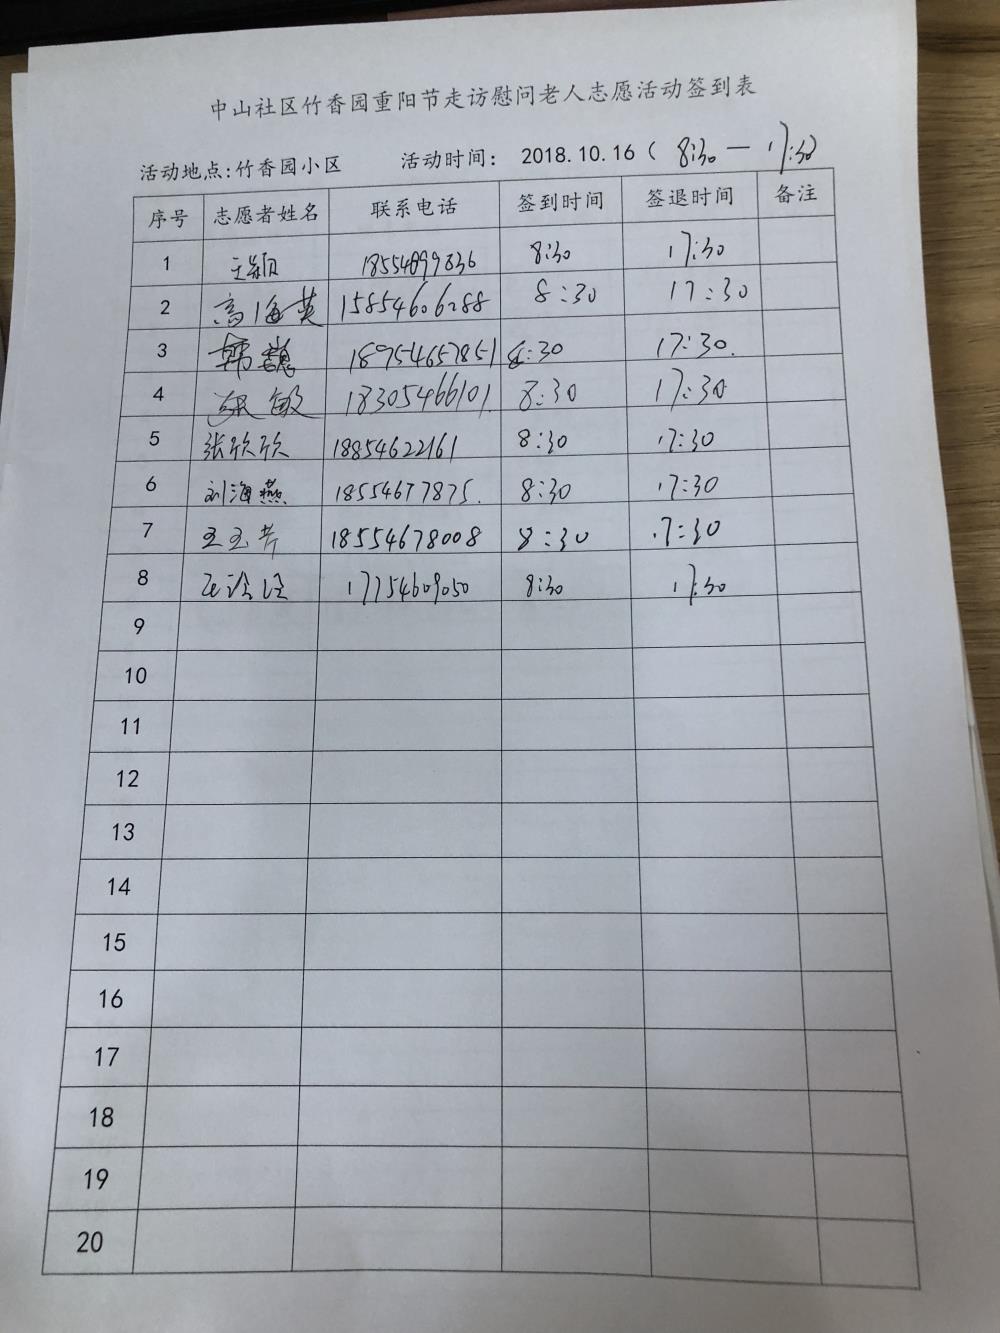 中山社区竹香园重阳节走访慰问老人志愿活动签到表
活动地点:竹香园小区 活动时间: 2018.10.16( 8:30 — 17:30)
序号 志愿者姓名 联系电话 签到时间 签退时间 备注
1 王颖 18554899836 8:30 17:30
2 高海英 15854606288 8:30 17:30
3 韩魏 18954657851 8:30 17:30.
4 张敏 18305466101 8:30 17:30
5 张欣欣 18854622161 8:30 17:30
6 刘海燕 18554677875. 8:30 17:30
7 王玉芹 18554678008 8:30 17:30
8 17754609050 8:30 17:30
9
10
11
12
13
14
15
16
17
18
19
20